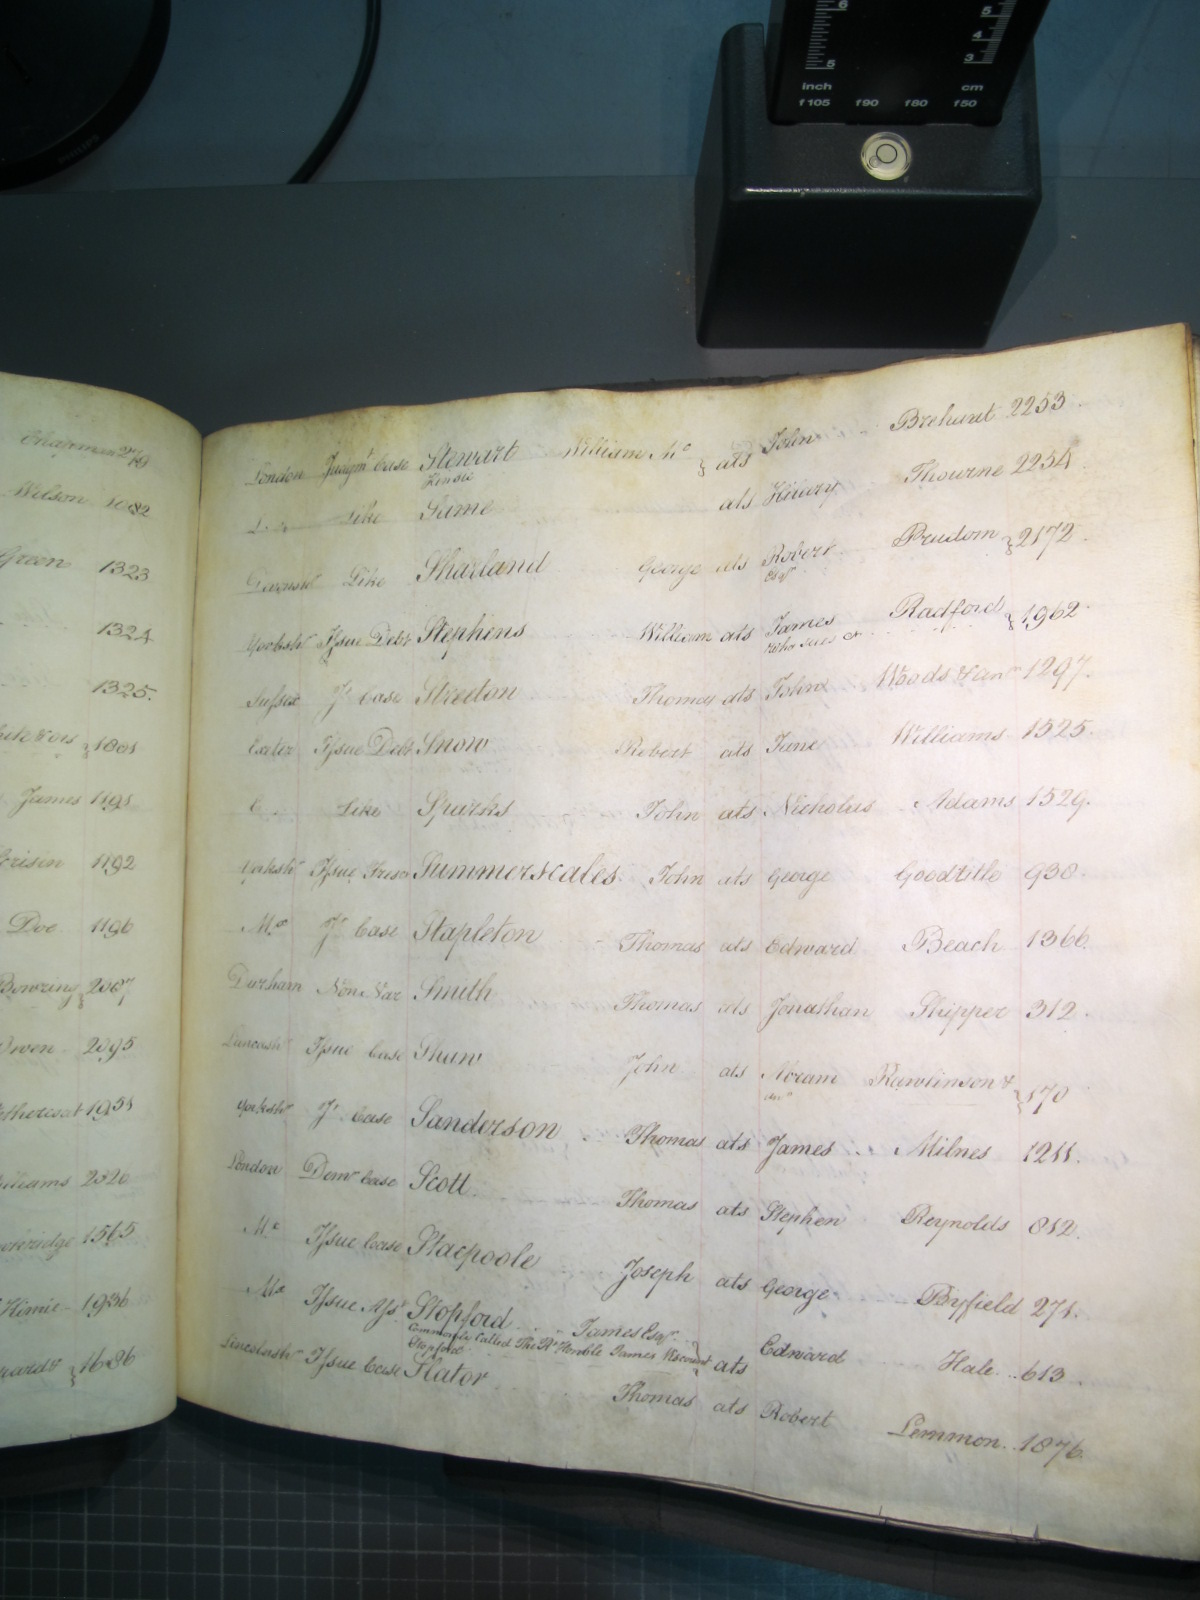 6 5
5 4
3
inch cm
f105 f90 f80 f50
PHILIPS
Chapman
Wilson 1082
Green 1323
1324
1325.
1801
James 1191
1192
Doe 1196
Bowring 2087
Owen 2095
1951
Williams 2320
1565
1936
1686
London Judgmt Case Stewart William Mc ats John Brehunt 2253
Like Same ats Hilary Thourne 2254
Devonshr Like Sharland George ats Robert Prudom 2172
Esqr
Yorkshr Issue Debt Stephens William ats James Radford 1962
Sussex Jt Case Streeton Thomas ats John Woods & anr 1297.
Exeter Issue Debt Snow Robert ats Jane Williams 1525.
Like Sparks John ats Nicholas Adams 1529.
Yorkshr Issue Summerscales John ats George Goodtitle 930.
Mx Jt Case Stapleton Thomas ats Edward Beach 1366.
Durham Smith Thomas ats Jonathan Skipper 312.
Lancashr Issue Case Shaw John ats Abram Rawlinson & 170
anr
Yorkshr Jt Case Sanderson Thomas ats James Milnes 1211.
London Demr Case Scott Thomas ats Stephen Reynolds 812.
Mx Issue Case Stacpoole Joseph ats George Byfield 271.
Mx Issue Stopford James Esqr ats Edward Hale 613
Commonly Called The Rt Honble James Viscount
Stopford
Lincolnshr Issue Case Slator Thomas ats Robert Lemmon 1876.